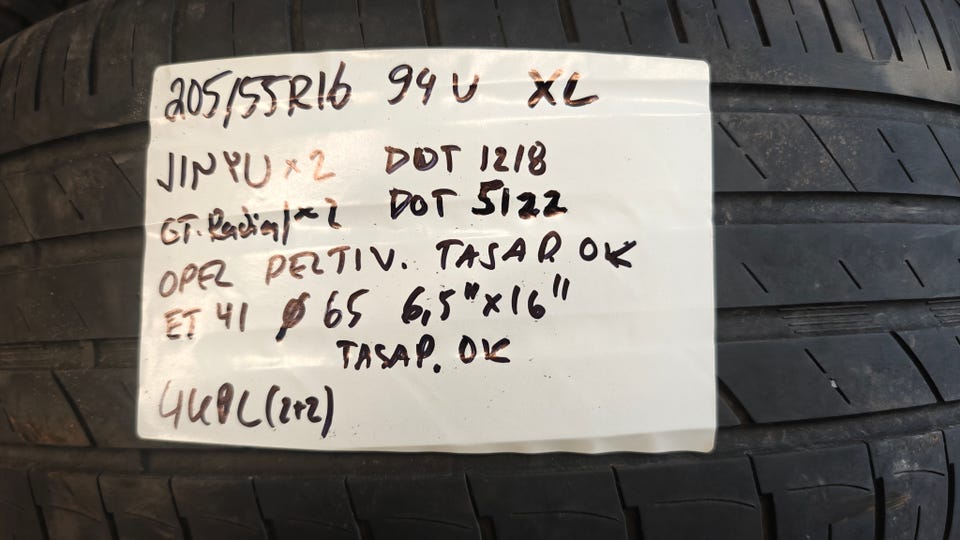 205/55R16 94U XL
JINYU x2 DOT 1218
GT.Radial x2 DOT 5122
OPEL PELTIV. TASAP. OK
ET 41 Ø 65 6,5"x16"
TASAP. OK
4KPL(2+2)